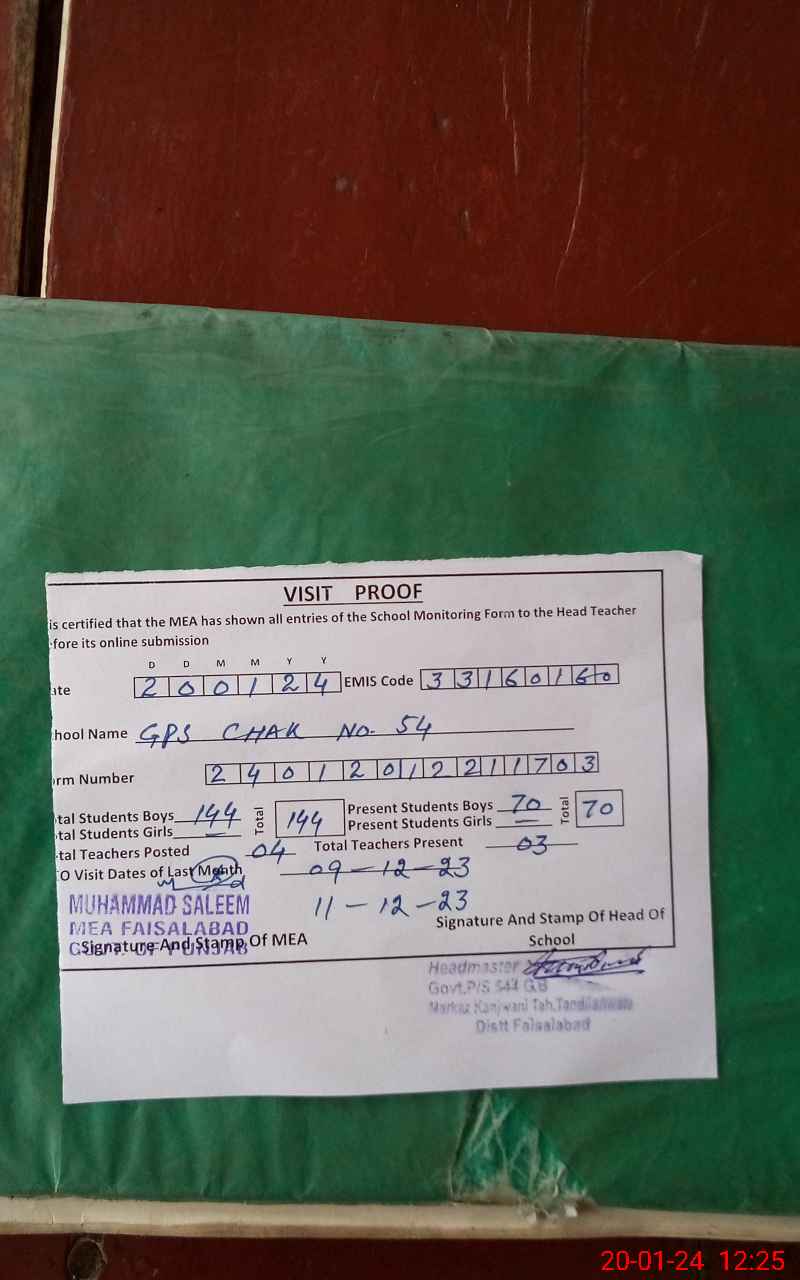 VISIT PROOF
is certified that the MEA has shown all entries of the School Monitoring Form to the Head Teacher
fore its online submission
D D M M Y Y
ate 2 0 0 1 2 4 EMIS Code 3 3 1 6 0 1 6 0
hool Name GPS CHAK No. 54
rm Number 2 4 0 1 2 0 1 2 2 1 1 7 0 3
tal Students Boys 144 Total 144 Present Students Boys 70 Total 70
tal Students Girls — Present Students Girls —
tal Teachers Posted 04 Total Teachers Present 03
O Visit Dates of Last Month 09-12-23
11-12-23
MUHAMMAD SALEEM
MEA FAISALABAD
GOVT. OF PUNJAB
Signature And Stamp Of MEA
Signature And Stamp Of Head Of
School
Headmaster
Govt.P/S 544 GB
Markaz Kanjwani Teh.Tandlianwala
Distt Faisalabad
20-01-24 12:25